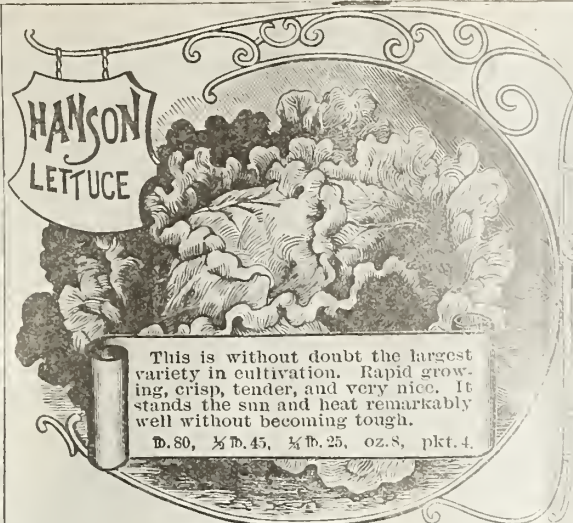 HANSON
LETTUCE
This is without doubt the largest
variety in cultivation. Rapid grow-
ing, crisp, tender, and very nice. It
stands the sun and heat remarkably
well without becoming tough.
℔.80, ½℔.45, ¼℔.25, oz.8, pkt.4.